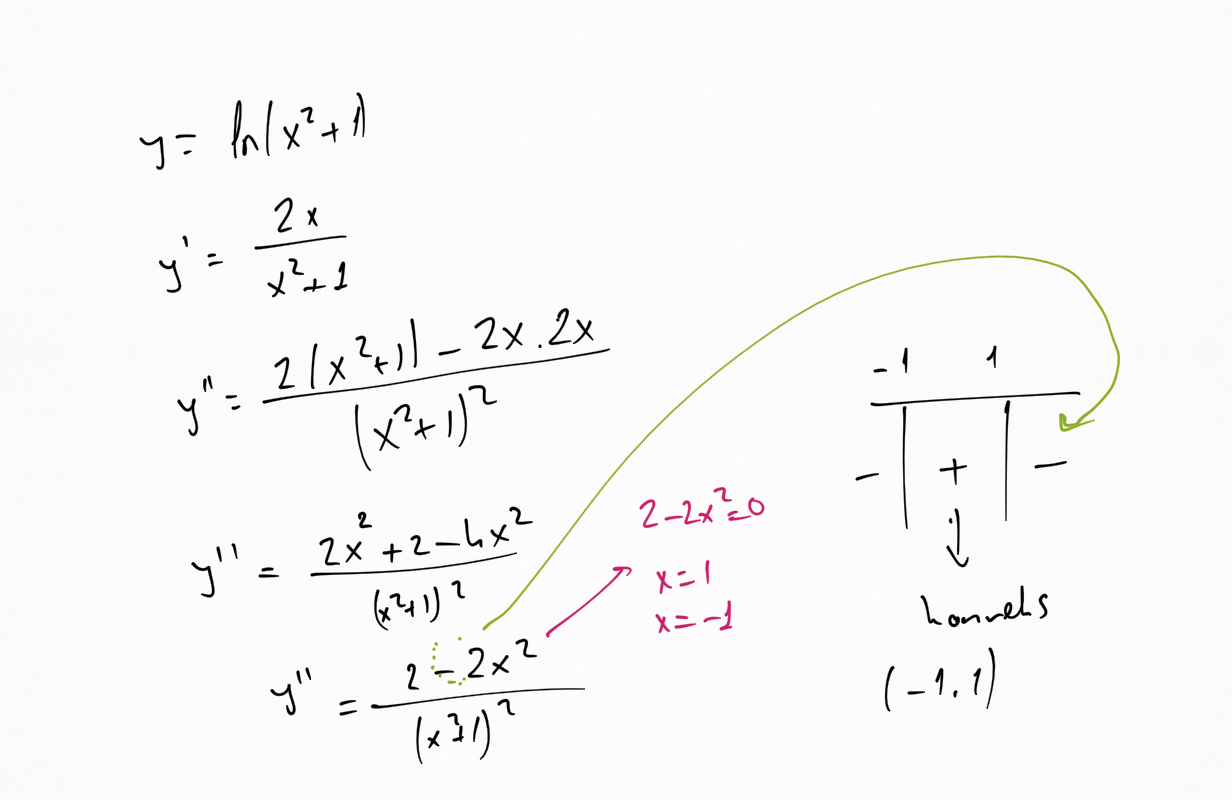 y = ln(x²+1)
y' = 2x / x²+1
y'' = 2(x²+1) - 2x.2x / (x²+1)²
y'' = 2x²+2-4x² / (x²+1)²
y'' = 2-2x² / (x²+1)²
2-2x²=0
x=1
x=-1
-1 1
- + -
konveks
(-1,1)